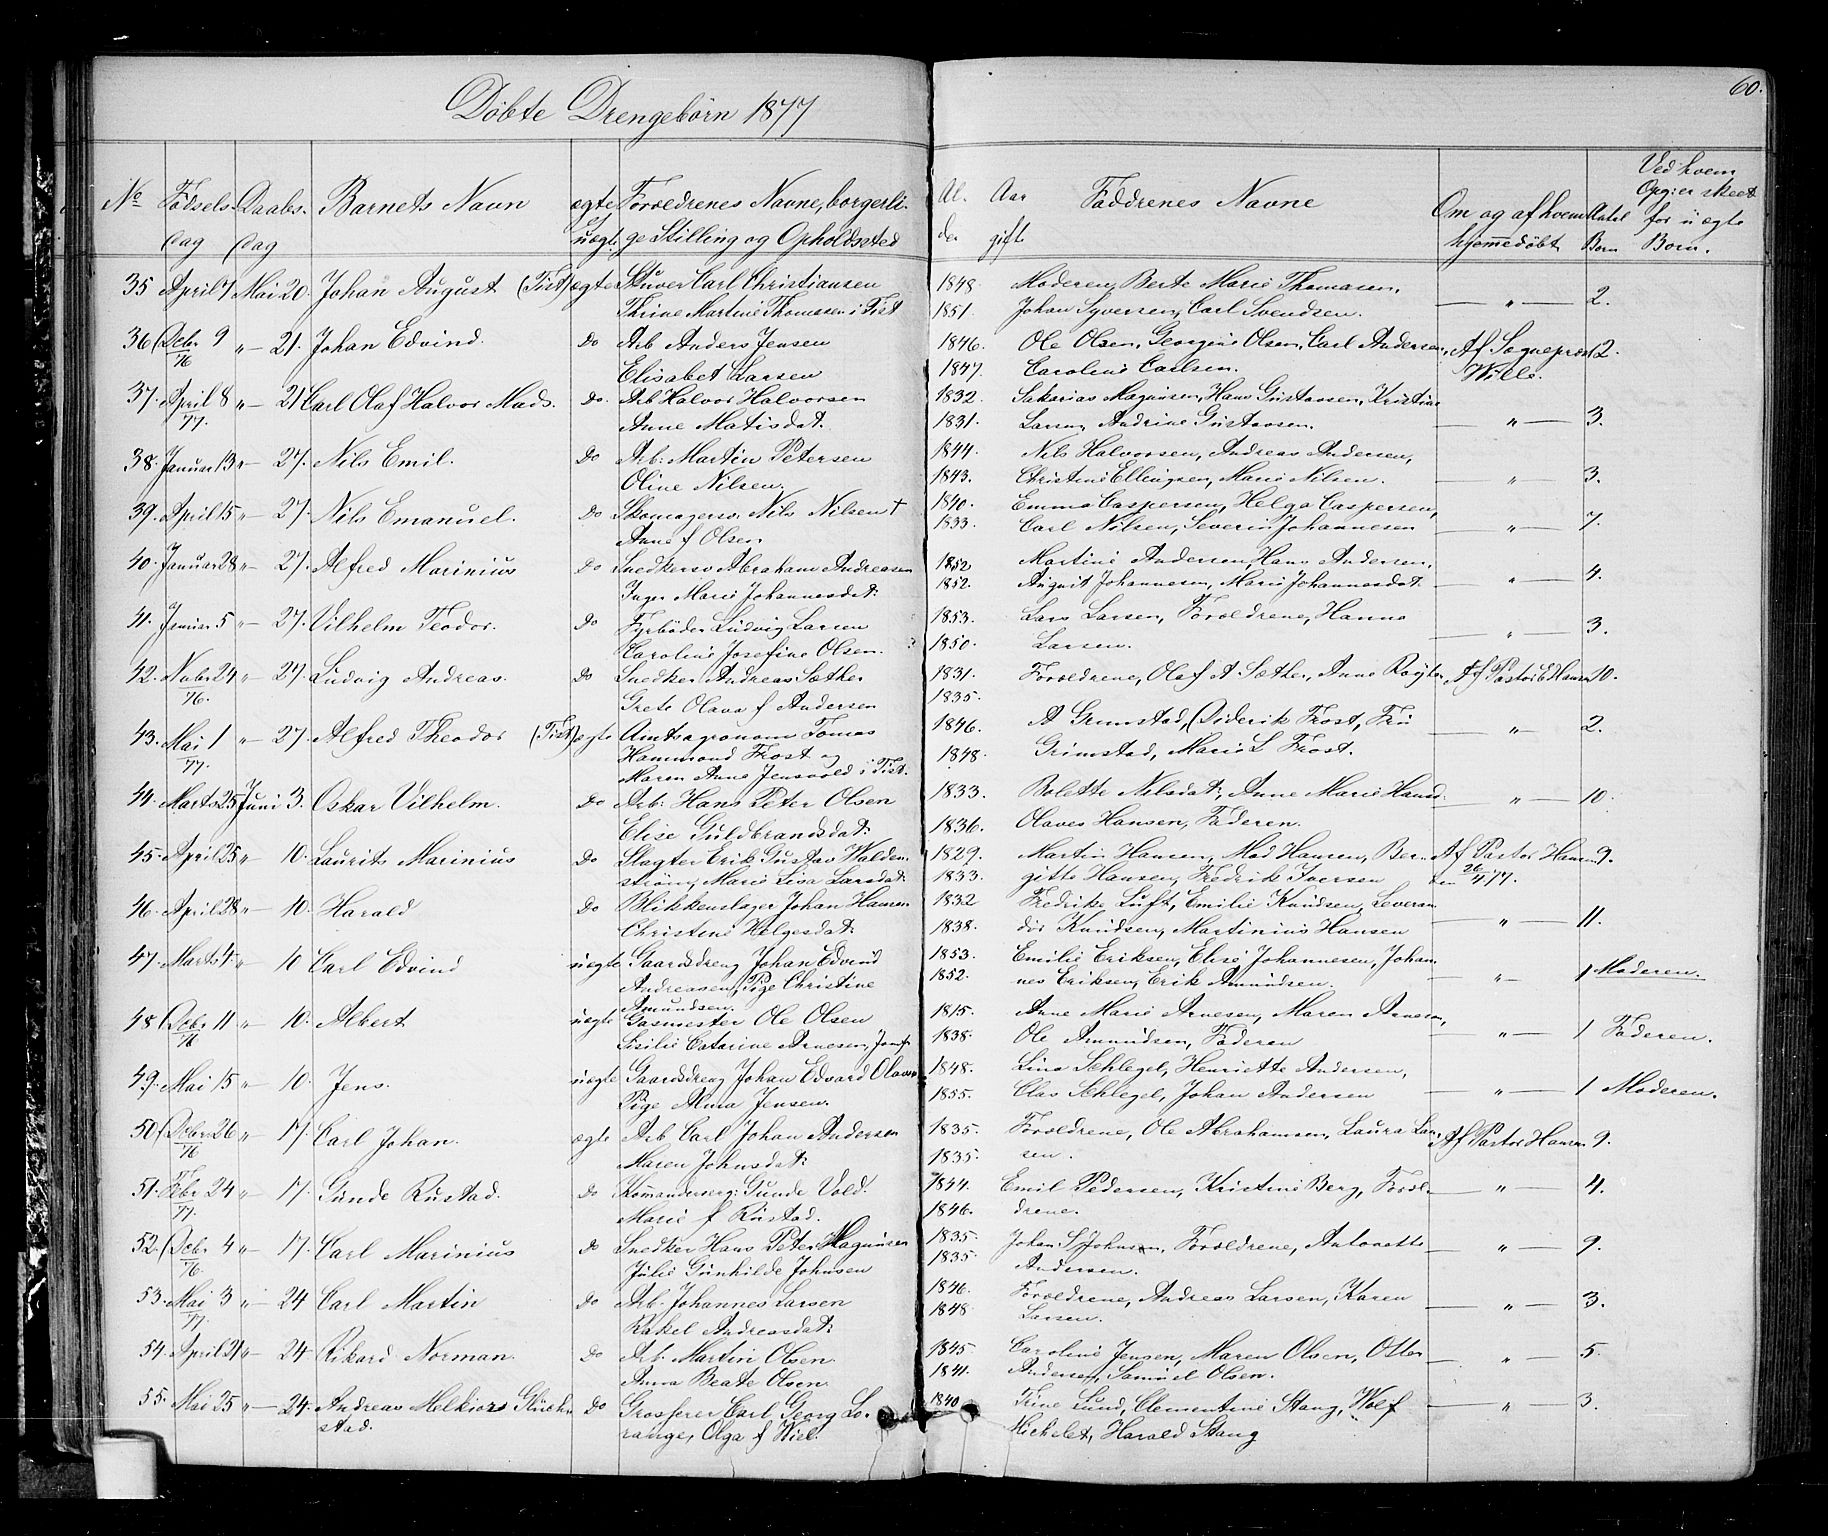 60.
Døbte Drengebørn 1877
No Fødsels dag Daabs dag Barnets Navn ægte uægte Forældrenes Navne, borgerlige Stilling og Opholdsted Alder Aar gifte Faddrenes Navne Om og af hvem hjemmedøbt Antal Born Ved hvem Opgier skeet for uægte Born.
35 April 7 Mai 20. Johan August (Tist) ægte Stuver Carl Christiansen 1848. Moderen, Berte Marie Thomasen, — „ — 2.
Thrine Martine Thomesen i Tist 1851. Johan Syversen, Carl Svendsen.
36 Dcbr 9 76 „ — 21. Johan Edvind. Do Arb Anders Jensen 1846. Ole Olsen, Georgine Olsen, Carl Andersen, Af Sognepræst 2.
Elisabet Larsen 1847. Caroline Carlsen. Wille.
37. April 8 77. „ — 21 Carl Olaf Halvor Mads. Do. Arb Halvor Halvorsen 1832. Sakarias Magnusen, Hans Gustavsen, Kristine
Anne Matisdat. 1831. Larsen, Andrine Gustavsen. — „ — 3.
38. Januar 13 „ — 27. Nils Emil. Do Arb: Martin Petersen 1844. Nils Halvorsen, Andreas Andersen,
Oline Nilsen. 1843. Christine Ellingsen, Marie Nilsen. — „ — 3.
39. April 15 „ — 27. Nils Emanuel. Do Skomagersv. Nils Nilsen † 1840. Emma Caspersen, Helga Caspersen,
Anne f Olsen 1833. Carl Nilsen, Severin Johannesen — „ — 7.
40. Januar 28 „ — 27. Alfred Marinius Do Snedkersv Abraham Andreasen 1852 Martine Andersen, Hans Andersen,
Inger Marie Johannesdat: 1852. August Johannesen, Marie Johannesdat. — „ — 4.
41. Januar 5 „ — 27. Vilhelm Teodor. Do Fyrbøder Ludvig Larsen 1853. Lars Larsen, Forældrene, Hanna
Caroline Josefine Olsen. 1850. Larsen. — „ — 3.
42. Novbr 24 76. „ — 27. Ludvig Andreas. Do Snedker Andreas Sæther 1831. Forældrene, Olaf A Sæther, Anne Af Pastor E Hansen 10.
Grete Olava f Andersen 1835.
43. Mai 1 77. „ — 27. Alfred Theodor (Tist) ægte Amtsagronom Tomas 1846. A Grimstad, Diderik Frost, Frü — „ — 2.
Hammond Frost og 1848. Grimstad, Marie L Frost.
Maren Anne Jensvold i Tist.
44. Marts 25 Juni 3. Oskar Vilhelm. Do Arb: Hans Peter Olsen 1833. Bolette Nilsdat:, Anne Marie Hansd: — „ — 10.
Elise Guldbrandsdat: 1836. Olaves Hansen, Faderen.
45. April 25 „ — 10. Laurits Marinius Do Slagter Erik Gustav Walden- 1829. Martin Hansen, Mad Hansen, Ber- Af Pastor Hansen 9.
strøm, Marie Lisa Larsdat: 1833. gitte Hansen, Fredrik Iversen den 26/4 77.
46. April 28 „ — 10. Harald Do Blikkenslager Johan Hansen 1832 Fredrike Luft, Emilie Knudsen, Leveran
Christine Helgesdat: 1838. dør Knudsen, Martinius Hansen — „ — 11.
47. Marts 4. „ — 10 Carl Edvind uægte Gaardsdreng Johan Edvind 1853. Emilie Eriksen, Elise Johannesen, Johan
Andreassen, Pige Christine 1852. nes Eriksen, Erik Amundsen. — „ — 1 Moderen.
Amundsen.
48 Dcbr 11 76 „ — 10. Albert uægte Gasmester Ole Olsen 1815. Anne Marie Arnesen, Maren Arnesen,
Sisilie Catarine Arnesen, Jomf 1838. Ole Amundsen, Faderen — „ — 1 Faderen.
49. Mai 15 „ — 10. Jens. uægte Gaardsdreng Johan Edvard Olavsen 1848. Lina Schlegel, Henriette Andersen,
Pige Alma Jensen. 1855. Clas Schlegel, Johan Andersen — „ — 1 Moderen.
50 Dcbr 26 76 „ — 17. Carl Johan. ægte Arb Carl Johan Andersen 1835. Forældrene, Ole Abrahamsen, Laura Lar- Af Pastor Hansen 9.
Maren Johnsdat: 1835. sen.
51. Febr 24 77. „ — 17. Gunde Rustad. Do Komanderserg: Gunde Vold. 1844. Emil Pedersen, Kristine Berg, Foræl- — „ — 4.
Marie f Rustad. 1846. drene.
52. Dcbr 4 76. „ — 17. Carl Marinius Do Snedker Hans Peter Magnusen 1835. Johan S Johnsen, Forældrene, Antonette — „ — 9.
Julie Gunhilde Johnsen 1835 Andersen.
53. Mai 3 77. „ — 24 Carl Martin Do Arb. Johannes Larsen 1846. Forældrene, Andreas Larsen, Karen
Rakel Andreasdat: 1848 Larsen. — „ — 3.
54. April 21 „ — 24. Rikard Norman. Do Arb: Martin Olsen. 1845 Caroline Jensen, Maren Olsen, Otto
Anna Beate Olsen. 1841. Andersen, Samuel Olsen. — „ — 5.
55. Mai 25 „ — 24. Andreas Melkiors Glück- Do Grosserer Carl Georg Lo- 1840 Trine Lund, Clementine Stang, Wolf — „ — 3.
stad. range, Olga f Wiel. Michelet, Harald Stang